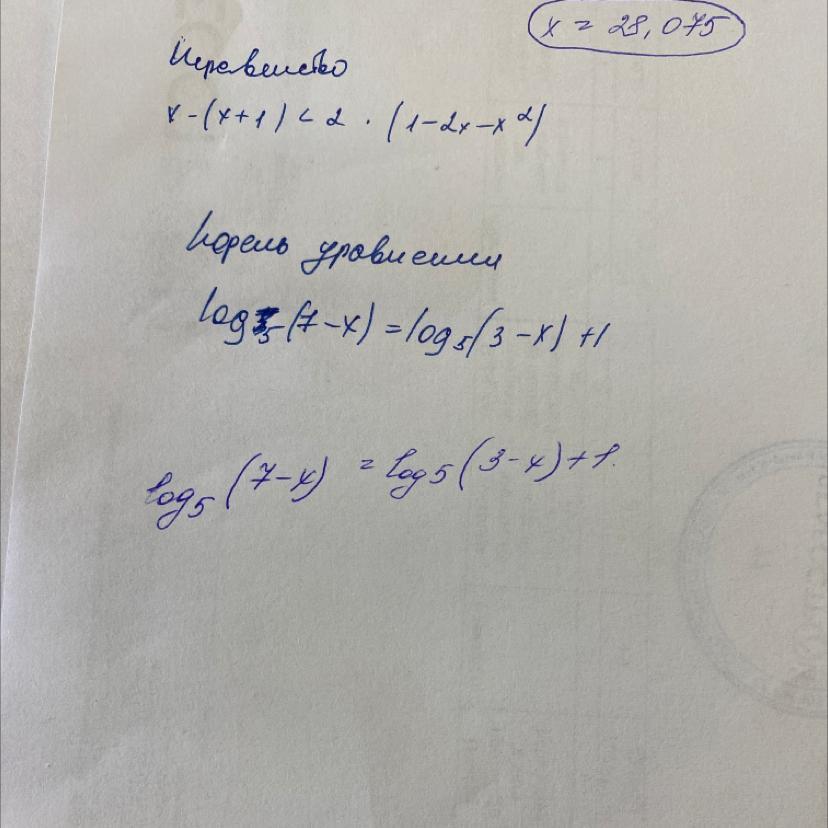 x = 28,075
Неравенство
x - (x+1) < 2 · (1-2x-x²)
Корень уравнения
log₅(7-x) = log₅(3-x) +1
log₅(7-x) = log₅(3-x)+1.